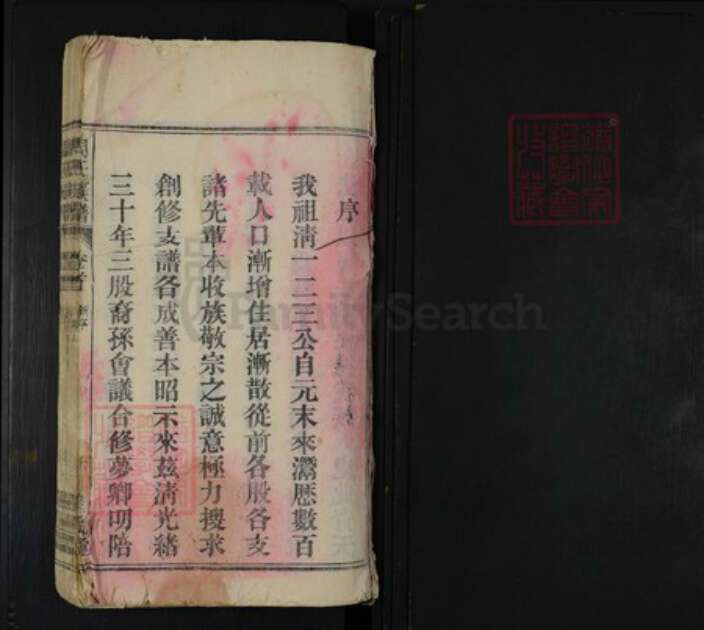 序
我祖清一二三公自元末來灊歷數百
載人口漸增住居漸散從前各股各支
諸先輩本收族敬宗之誠意極力搜求
創修支譜各成善本昭示來茲清光緒
三十年三股裔孫會議合修夢卿明陪
周氏族譜 卷首
FamilySearch